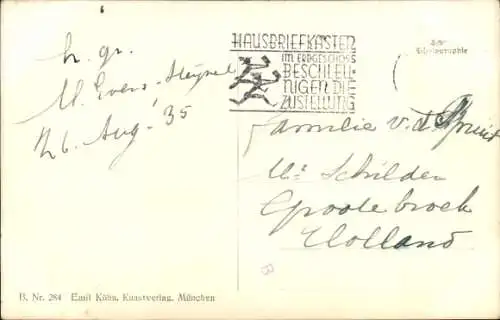 h. gr.
M. Evers-
26 Aug. '35
HAUSBRIEFKÄSTEN
IM ERDGESCHOSS
BESCHLEU-
NIGEN DIE
ZUSTELLUNG
Echte
Photographie
Familie v. d.
Schilder
Grootebroek
Holland
B. Nr. 284 Emil Köhn, Kunstverlag, München